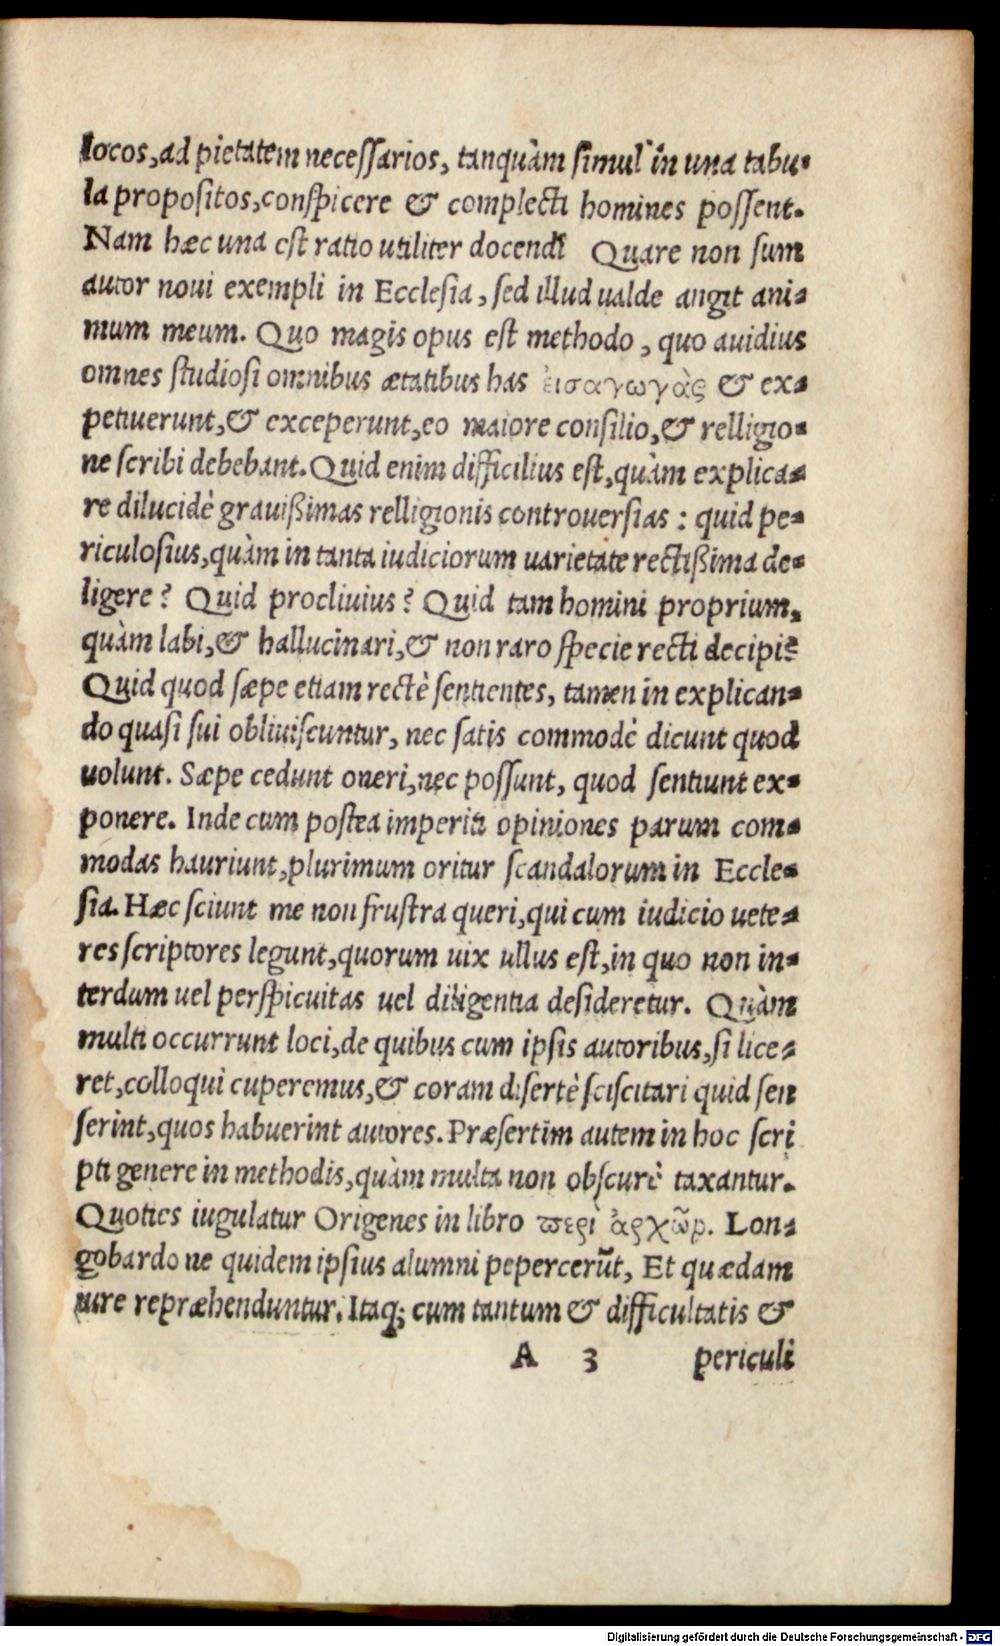 locos, ad pietatem necessarios, tanquàm simul in una tabu-
la propositos, conspicere & complecti homines possent.
Nam hæc una est ratio utiliter docendi Quare non sum
autor noui exempli in Ecclesia, sed illud ualde angit ani-
mum meum. Quo magis opus est methodo, quo auidius
omnes studiosi omnibus ætatibus has ἐισαγωγὰς & ex-
petiuerunt, & exceperunt, eo maiore consilio, & relligio-
ne scribi debebant. Quid enim difficilius est, quàm explica-
re dilucidè grauißimas relligionis controuersias: quid pe-
riculosius, quàm in tanta iudiciorum uarietate rectißima de-
ligere? Quid procliuius? Quid tam homini proprium,
quàm labi, & hallucinari, & non raro specie recti decipi?
Quid quod sæpe etiam rectè sentientes, tamen in explican-
do quasi sui obliuiscuntur, nec satis commodè dicunt quod
uolunt. Sæpe cedunt oneri, nec possunt, quod sentiunt ex-
ponere. Inde cum postea imperiti opiniones parum com-
modas hauriunt, plurimum oritur scandalorum in Eccle-
sia. Hæc sciunt me non frustra queri, qui cum iudicio uete-
res scriptores legunt, quorum uix ullus est, in quo non in-
terdum uel perspicuitas uel diligentia desideretur. Quàm
multi occurrunt loci, de quibus cum ipsis autoribus, si lice-
ret, colloqui cuperemus, & coram disertè sciscitari quid sen
serint, quos habuerint autores. Præsertim autem in hoc scri
pti genere in methodis, quàm multa non obscurè taxantur.
Quoties iugulatur Origenes in libro περὶ ἀρχῶν. Lon-
gobardo ne quidem ipsius alumni pepercerũt, Et quædam
iure repræhenduntur. Itaq; cum tantum & difficultatis &
A 3 periculi
Digitalisierung gefördert durch die Deutsche Forschungsgemeinschaft - DFG